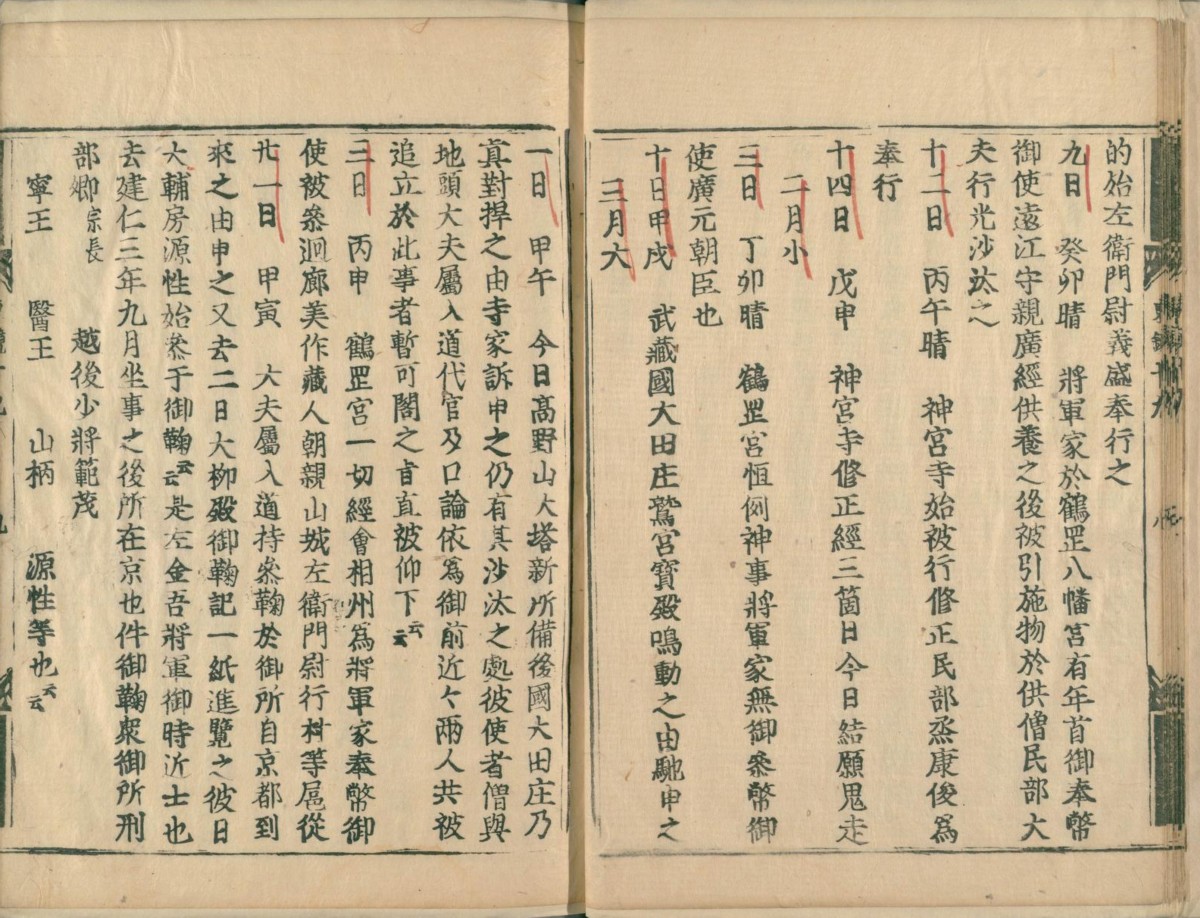 的始左衛門尉義盛奉行之
九日　癸卯晴　將軍家於鶴罡八幡宮有年首御奉幣
御使遠江守親廣經供養之後被引施物於供僧民部大
夫行光沙汰之
十二日　丙午晴　神宮寺始被行修正民部烝康俊爲
奉行
十四日　戊申　神宮寺修正經三箇日今日結願鬼走
二月小
三日　丁卯晴　鶴罡宮恒例神事將軍家無御参幣御
使廣元朝臣也
十日甲戌　武藏國大田庄鷲宮寳殿鳴動之由馳申之
三月大
一日　甲午　今日高野山大塔新所備後國大田庄乃
真對捍之由寺家訴申之仍有其沙汰之處彼使者僧與
地頭大夫屬入道代官及口論依爲御前近々兩人共被
追立於此事者暫可閣之旨直被仰下云云
三日　丙申　鶴罡宮一切經會相州爲將軍家奉幣御
使被参迴廊美作藏人朝親山城左衛門尉行村等扈從
廿一日　甲寅　大夫屬入道持参鞠於御所自京都到
來之由申之又去二日大柳殿御鞠記一紙進覽之彼日
大輔房源性始参于御鞠云云是左金吾將軍御時近士也
去建仁三年九月坐事之後所在京也件御鞠衆御所刑
部卿宗長　越後少將範茂
寧王　醫王　山柄　源性等也云云